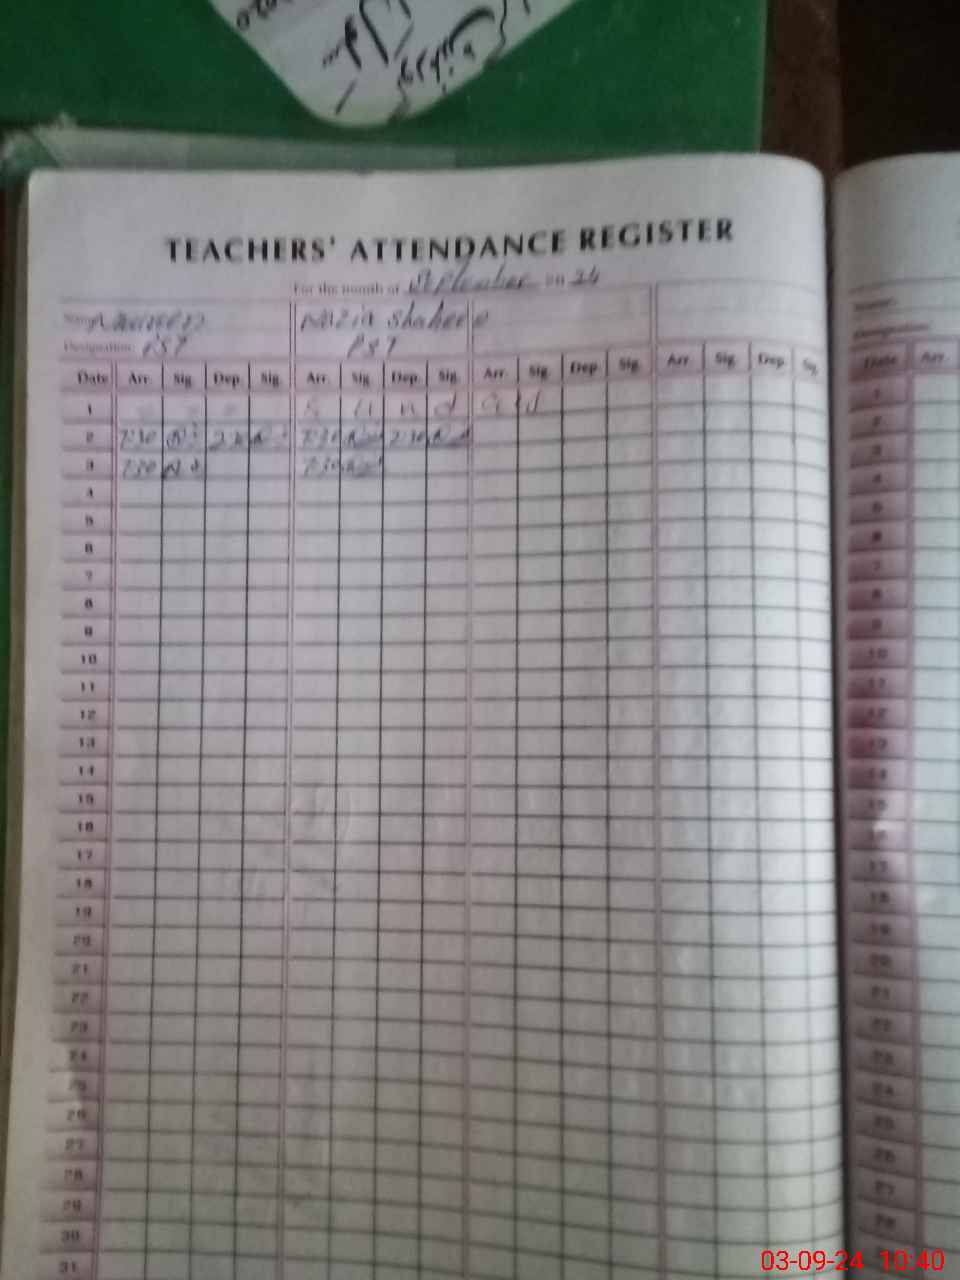 TEACHERS' ATTENDANCE REGISTER
For the month of September 20 24
Name Nazia Shaheen
Designation PST PST
Date Arr. Sig. Dep. Sig. Arr. Sig. Dep. Sig. Arr. Sig. Dep. Sig. Arr. Sig. Dep. Sig. Date Arr.
1 S u n d a y 1
2 7:30 2:30 7:30 2:30 2
3 7:30 7:30 3
4 4
5 5
6 6
7 7
8 8
9 9
10 10
11 11
12 12
13 13
14 14
15 15
16 16
17 17
18 18
19 19
20 20
21 21
22 22
23 23
24 24
25 25
26 26
27 27
28 28
29
30
31
03-09-24 10:40